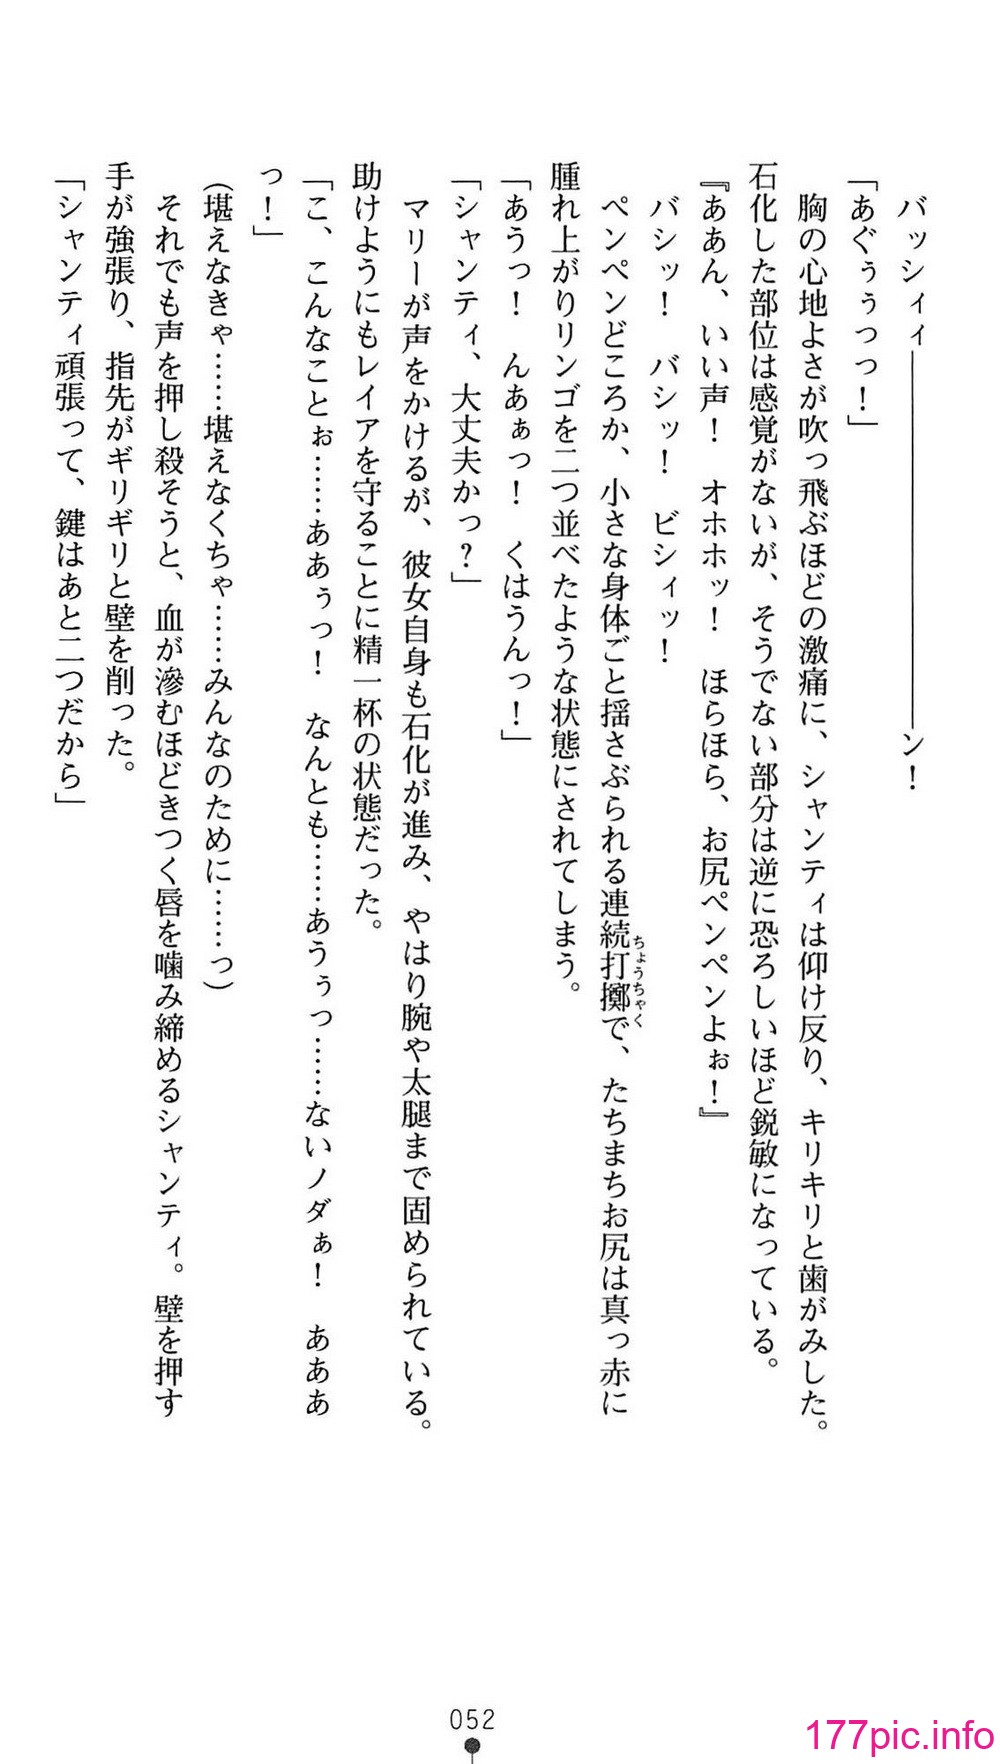 バッシィィ――――――――ン！
「あぐぅぅっっ！」
胸の心地よさが吹っ飛ぶほどの激痛に、シャンティは仰け反り、キリキリと歯がみした。
石化した部位は感覚がないが、そうでない部分は逆に恐ろしいほど鋭敏になっている。
『ああん、いい声！　オホホッ！　ほらほら、お尻ペンペンよぉ！』
バシッ！　バシッ！　ビシィッ！
ペンペンどころか、小さな身体ごと揺さぶられる連続打擲で、たちまちお尻は真っ赤に
ちょうちゃく
腫れ上がりリンゴを二つ並べたような状態にされてしまう。
「あうっ！　んあぁっ！　くはうんっ！」
「シャンティ、大丈夫かっ？」
マリーが声をかけるが、彼女自身も石化が進み、やはり腕や太腿まで固められている。
助けようにもレイアを守ることに精一杯の状態だった。
「こ、こんなことぉ……ああぅっ！　なんとも……あうぅっ……ないノダぁ！　あああ
っ！」
（堪えなきゃ……堪えなくちゃ……みんなのために……っ）
それでも声を押し殺そうと、血が滲むほどきつく唇を噛み締めるシャンティ。壁を押す
手が強張り、指先がギリギリと壁を削った。
「シャンティ頑張って、鍵はあと二つだから」
052
177pic.info